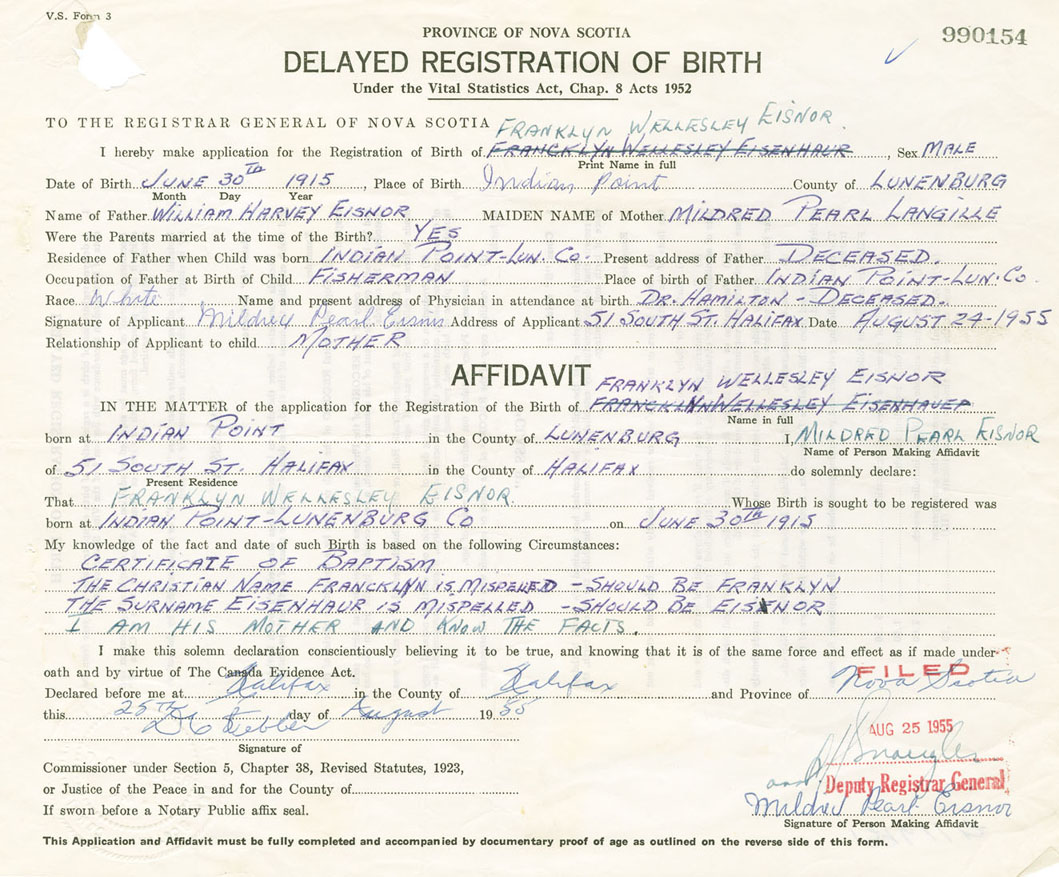 V.S. Form 3
990154
PROVINCE OF NOVA SCOTIA
DELAYED REGISTRATION OF BIRTH
Under the Vital Statistics Act, Chap. 8 Acts 1952
TO THE REGISTRAR GENERAL OF NOVA SCOTIA FRANKLYN WELLESLEY EISNOR.
I hereby make application for the Registration of Birth of FRANCKLYN WELLESLEY EISENHAUR, Sex MALE
Print Name in full
Date of Birth JUNE 30TH 1915, Place of Birth Indian Point County of LUNENBURG
Month Day Year
Name of Father WILLIAM HARVEY EISNOR MAIDEN NAME of Mother MILDRED PEARL LANGILLE
Were the Parents married at the time of the Birth? YES
Residence of Father when Child was born INDIAN POINT-LUN. CO. Present address of Father DECEASED.
Occupation of Father at Birth of Child FISHERMAN Place of birth of Father INDIAN POINT-LUN. CO.
Race White Name and present address of Physician in attendance at birth DR. HAMILTON - DECEASED.
Signature of Applicant Mildred Pearl Eisnor Address of Applicant 51 SOUTH ST. HALIFAX Date AUGUST 24-1955
Relationship of Applicant to child MOTHER
AFFIDAVIT FRANKLYN WELLESLEY EISNOR
IN THE MATTER of the application for the Registration of the Birth of FRANCKLYN WELLESLEY EISENHAUER
Name in full
born at INDIAN POINT in the County of LUNENBURG I, MILDRED PEARL EISNOR
Name of Person Making Affidavit
of 51 SOUTH ST. HALIFAX in the County of HALIFAX do solemnly declare:
Present Residence
That FRANKLYN WELLESLEY EISNOR. Whose Birth is sought to be registered was
born at INDIAN POINT-LUNENBURG CO on JUNE 30TH 1915
My knowledge of the fact and date of such Birth is based on the following Circumstances:
CERTIFICATE OF BAPTISM
THE CHRISTIAN NAME FRANCKLYN IS MISPELLED - SHOULD BE FRANKLYN
THE SURNAME EISENHAUR IS MISPELLED - SHOULD BE EISNOR
I AM HIS MOTHER AND KNOW THE FACTS.
I make this solemn declaration conscientiously believing it to be true, and knowing that it is of the same force and effect as if made under
oath and by virtue of The Canada Evidence Act.
FILED
Declared before me at Halifax in the County of Halifax and Province of Nova Scotia
this 25TH day of August 1955
AUG 25 1955
Signature of
Commissioner under Section 5, Chapter 38, Revised Statutes, 1923,
or Justice of the Peace in and for the County of
Deputy Registrar General
If sworn before a Notary Public affix seal.
Mildred Pearl Eisnor
Signature of Person Making Affidavit
This Application and Affidavit must be fully completed and accompanied by documentary proof of age as outlined on the reverse side of this form.